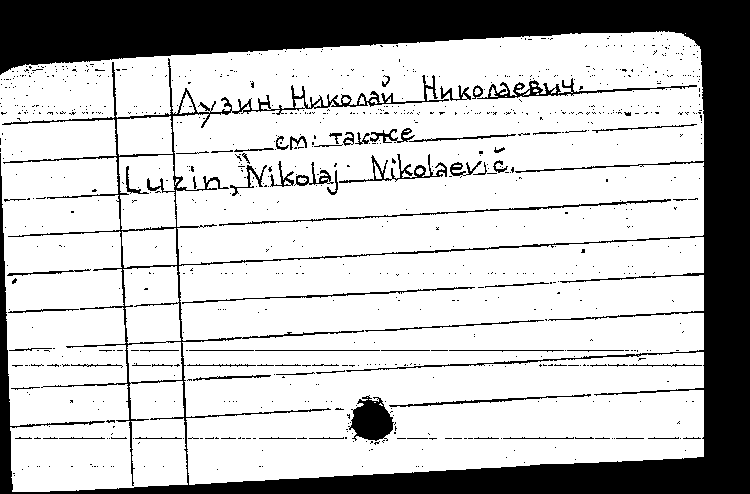 Лузин, Николай Николаевич.
см. также
Luzin, Nikolaj Nikolaevič.